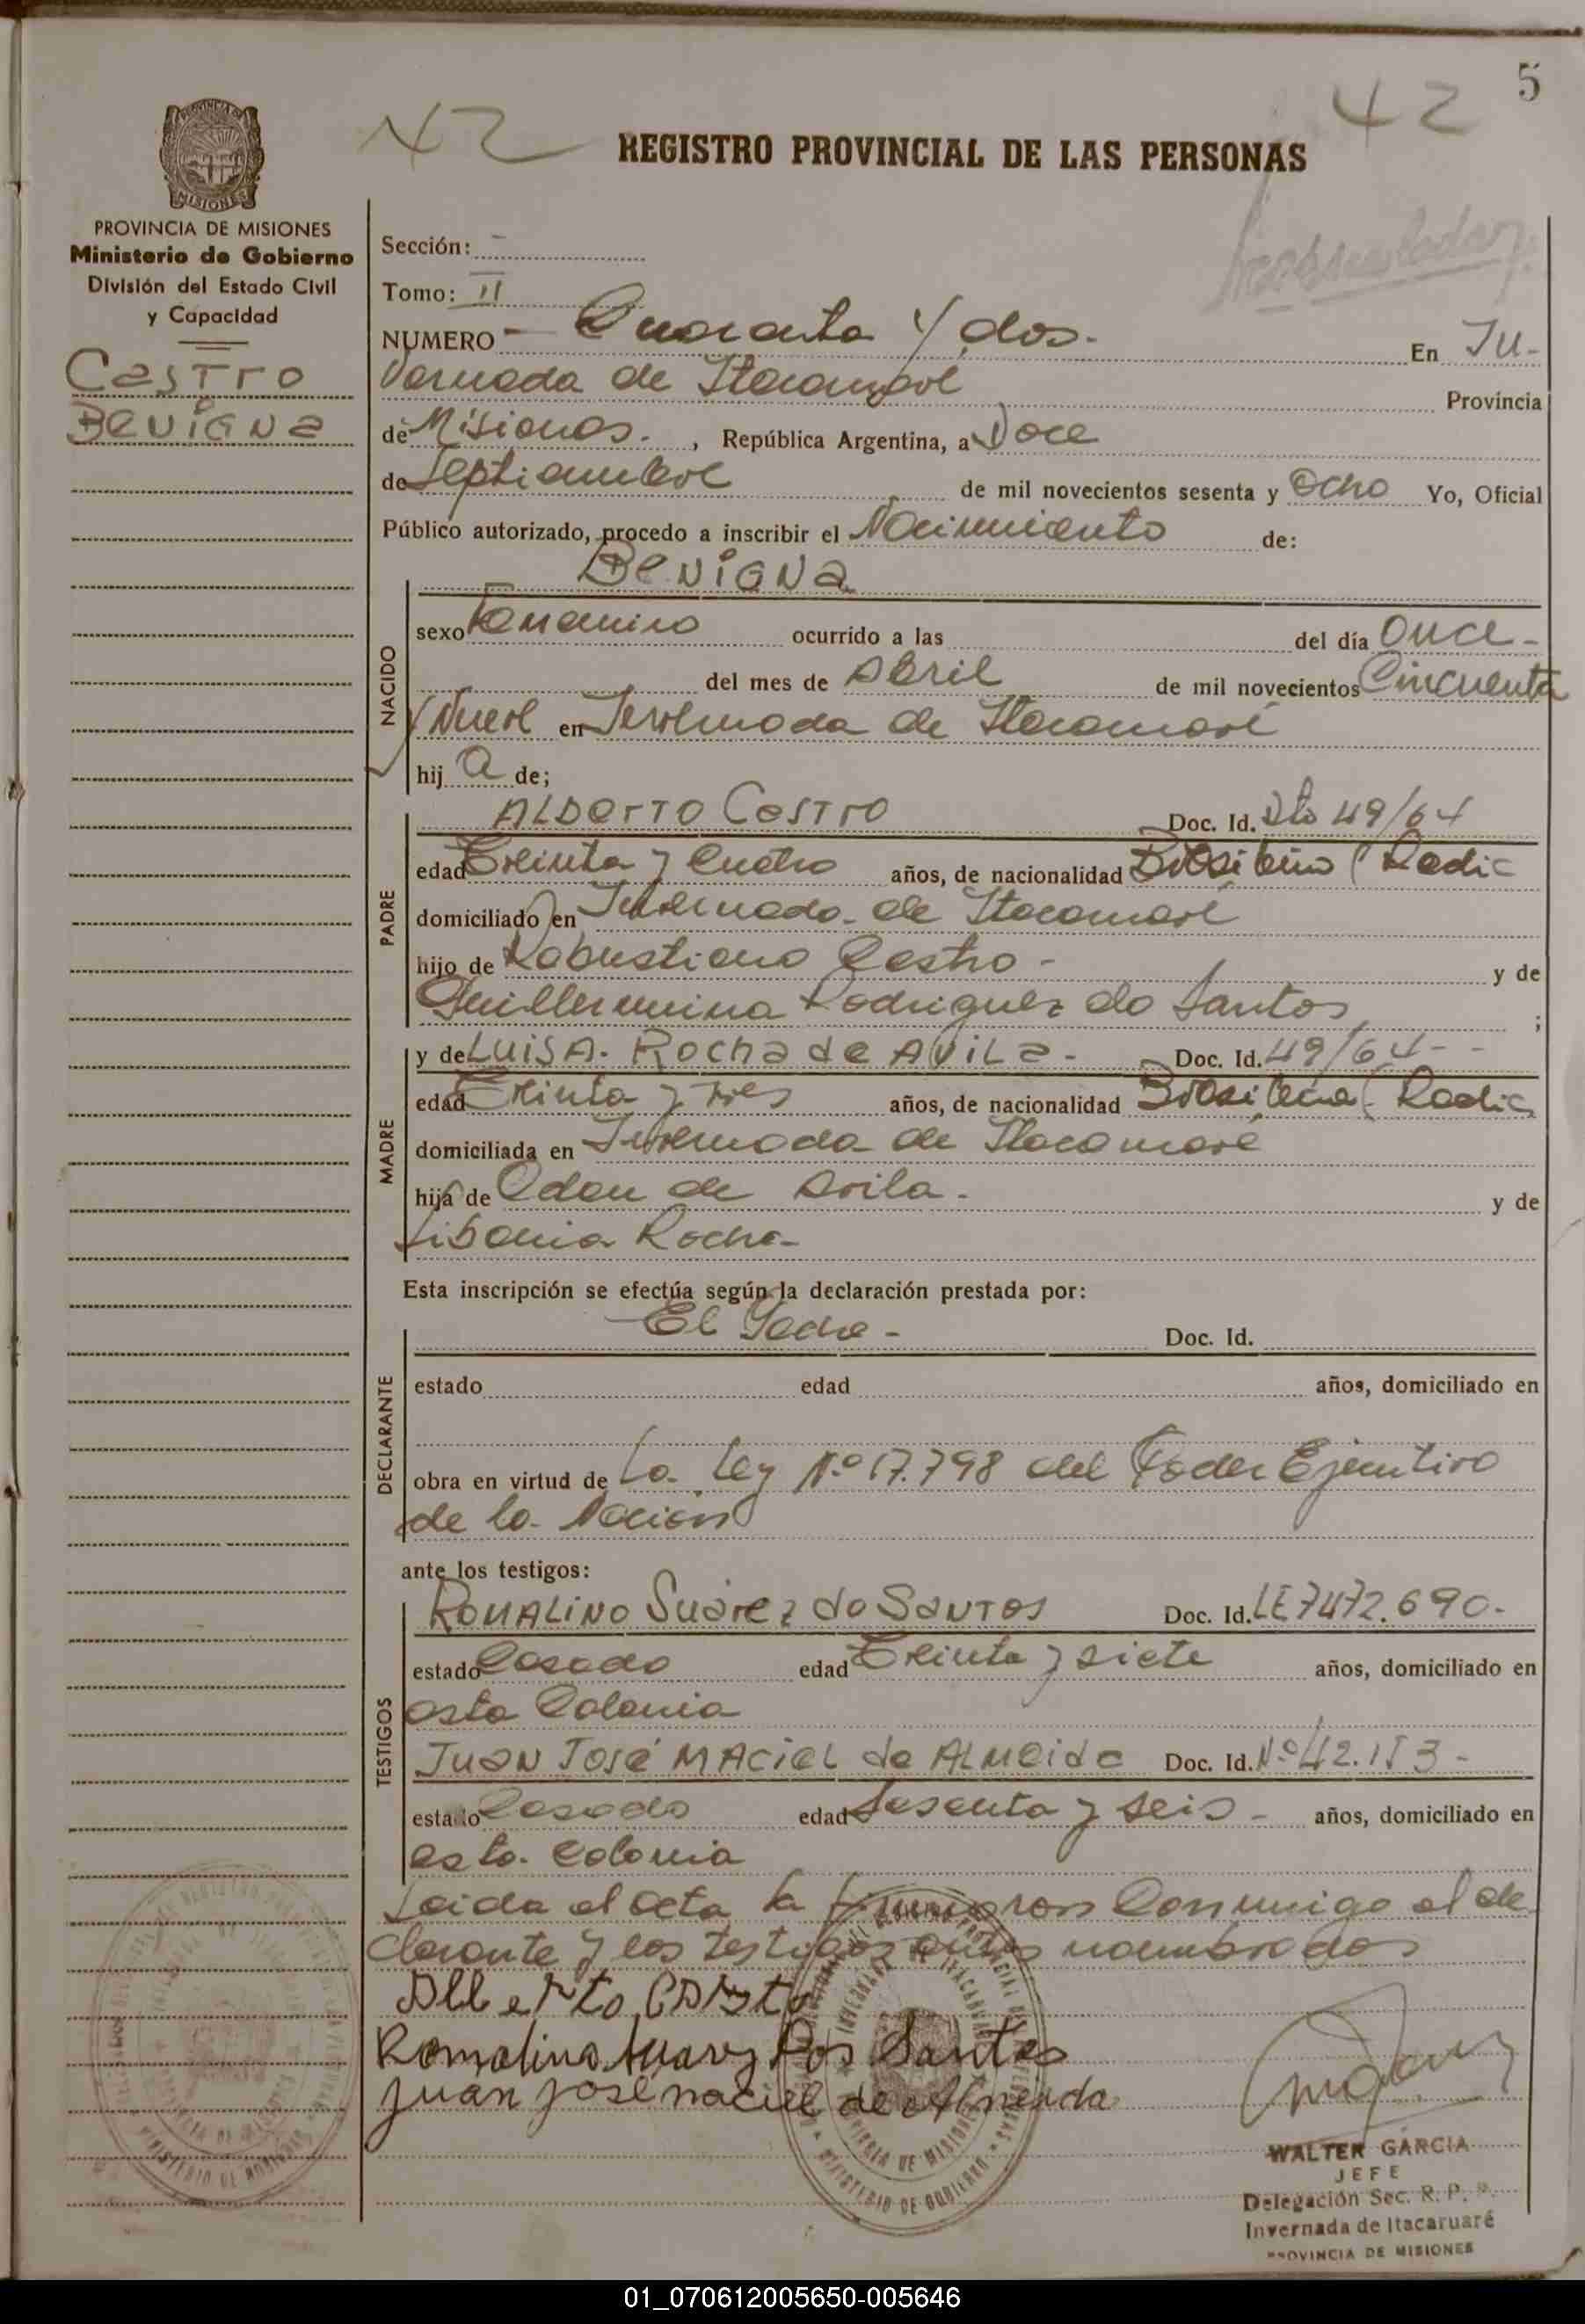 5
42
42
REGISTRO PROVINCIAL DE LAS PERSONAS
PROVINCIA DE MISIONES
Ministerio de Gobierno
División del Estado Civil
y Capacidad
Castro
Benigna
Sección: -
Tomo: II
NUMERO - Cuarenta y dos.- En In-
vernada de Itacaruaré Provincia
de Misiones. , República Argentina, a Doce
de Septiembre de mil novecientos sesenta y Ocho Yo, Oficial
Público autorizado, procedo a inscribir el Nacimiento de:
BENIGNA
NACIDO
sexo Femenino ocurrido a las del día Once-
del mes de Abril de mil novecientos Cincuenta
y Nueve en Invernada de Itacaruaré
hij a de;
PADRE
ALBerTO CasTrO Doc. Id. Dto 49/64
edad Treinta y Cuatro años, de nacionalidad Brasileño (Radic
domiciliado en Invernada de Itacaruaré
hijo de Robustiano Castro - y de
Guillermina Rodriguez do Santos ;
MADRE
y de LUISA. Rocha de AVILa - Doc. Id. 49/64--
edad Treinta y Tres años, de nacionalidad Brasileña (Radic
domiciliada en Invernada de Itacaruaré
hija de Odon de Avila. y de
Libania Rocha-
Esta inscripción se efectúa según la declaración prestada por:
DECLARANTE
El Padre - Doc. Id.
estado edad años, domiciliado en
obra en virtud de La Ley Nº 17.798 del Poder Ejecutivo
de la Nación
ante los testigos:
TESTIGOS
ROMALINO Suárez do SANTOS Doc. Id. LE 7472.690.
estado Casado edad Treinta y siete años, domiciliado en
esta Colonia
JUAN José MACIEL de ALMeida Doc. Id. Nº 42.153-
estado Casado edad Sesenta y seis - años, domiciliado en
esta Colonia
Leida el acta la firmaron Conmigo el de
clarante y los testigos antes nombrados
Alberto Castro
Romalino Suarez Dos Santos
Juan José Maciel de Almeida
WALTER GARCIA
JEFE
Delegación Sec. R. P. P.
Invernada de Itacaruaré
PROVINCIA DE MISIONES
01_070612005650-005646